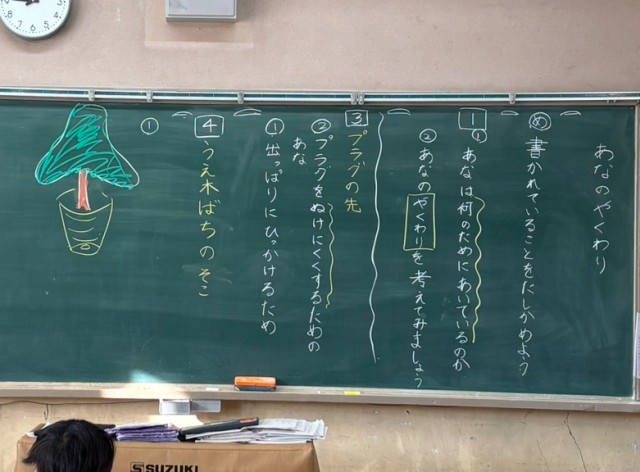 あなのやくわり
め 書かれていることをたしかめよう
1
① あなは何のためにあいているのか
② あなのやくわりを考えてみましょう
3 プラグの先
② プラグをぬけにくくするための
あな
① 出っぱりにひっかけるため
4 うえ木ばちのそこ
①
SUZUKI